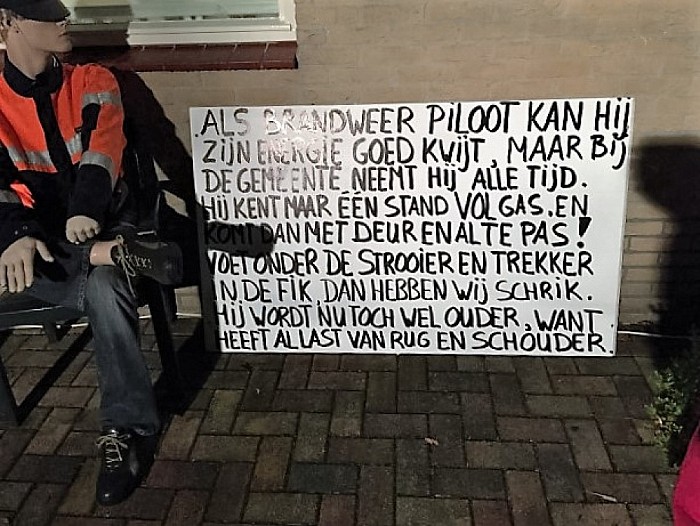 ALS BRANDWEER PILOOT KAN HIJ
ZIJN ENERGIE GOED KWIJT, MAAR BIJ
DE GEMEENTE NEEMT HIJ ALLE TIJD.
HIJ KENT MAAR ÉÉN STAND VOL GAS. EN
KOMT DAN MET DEUR EN AL TE PAS!
VOET ONDER DE STROOIER EN TREKKER
IN DE FIK, DAN HEBBEN WIJ SCHRIK.
HIJ WORDT NU TOCH WEL OUDER, WANT
HEEFT AL LAST VAN RUG EN SCHOUDER.